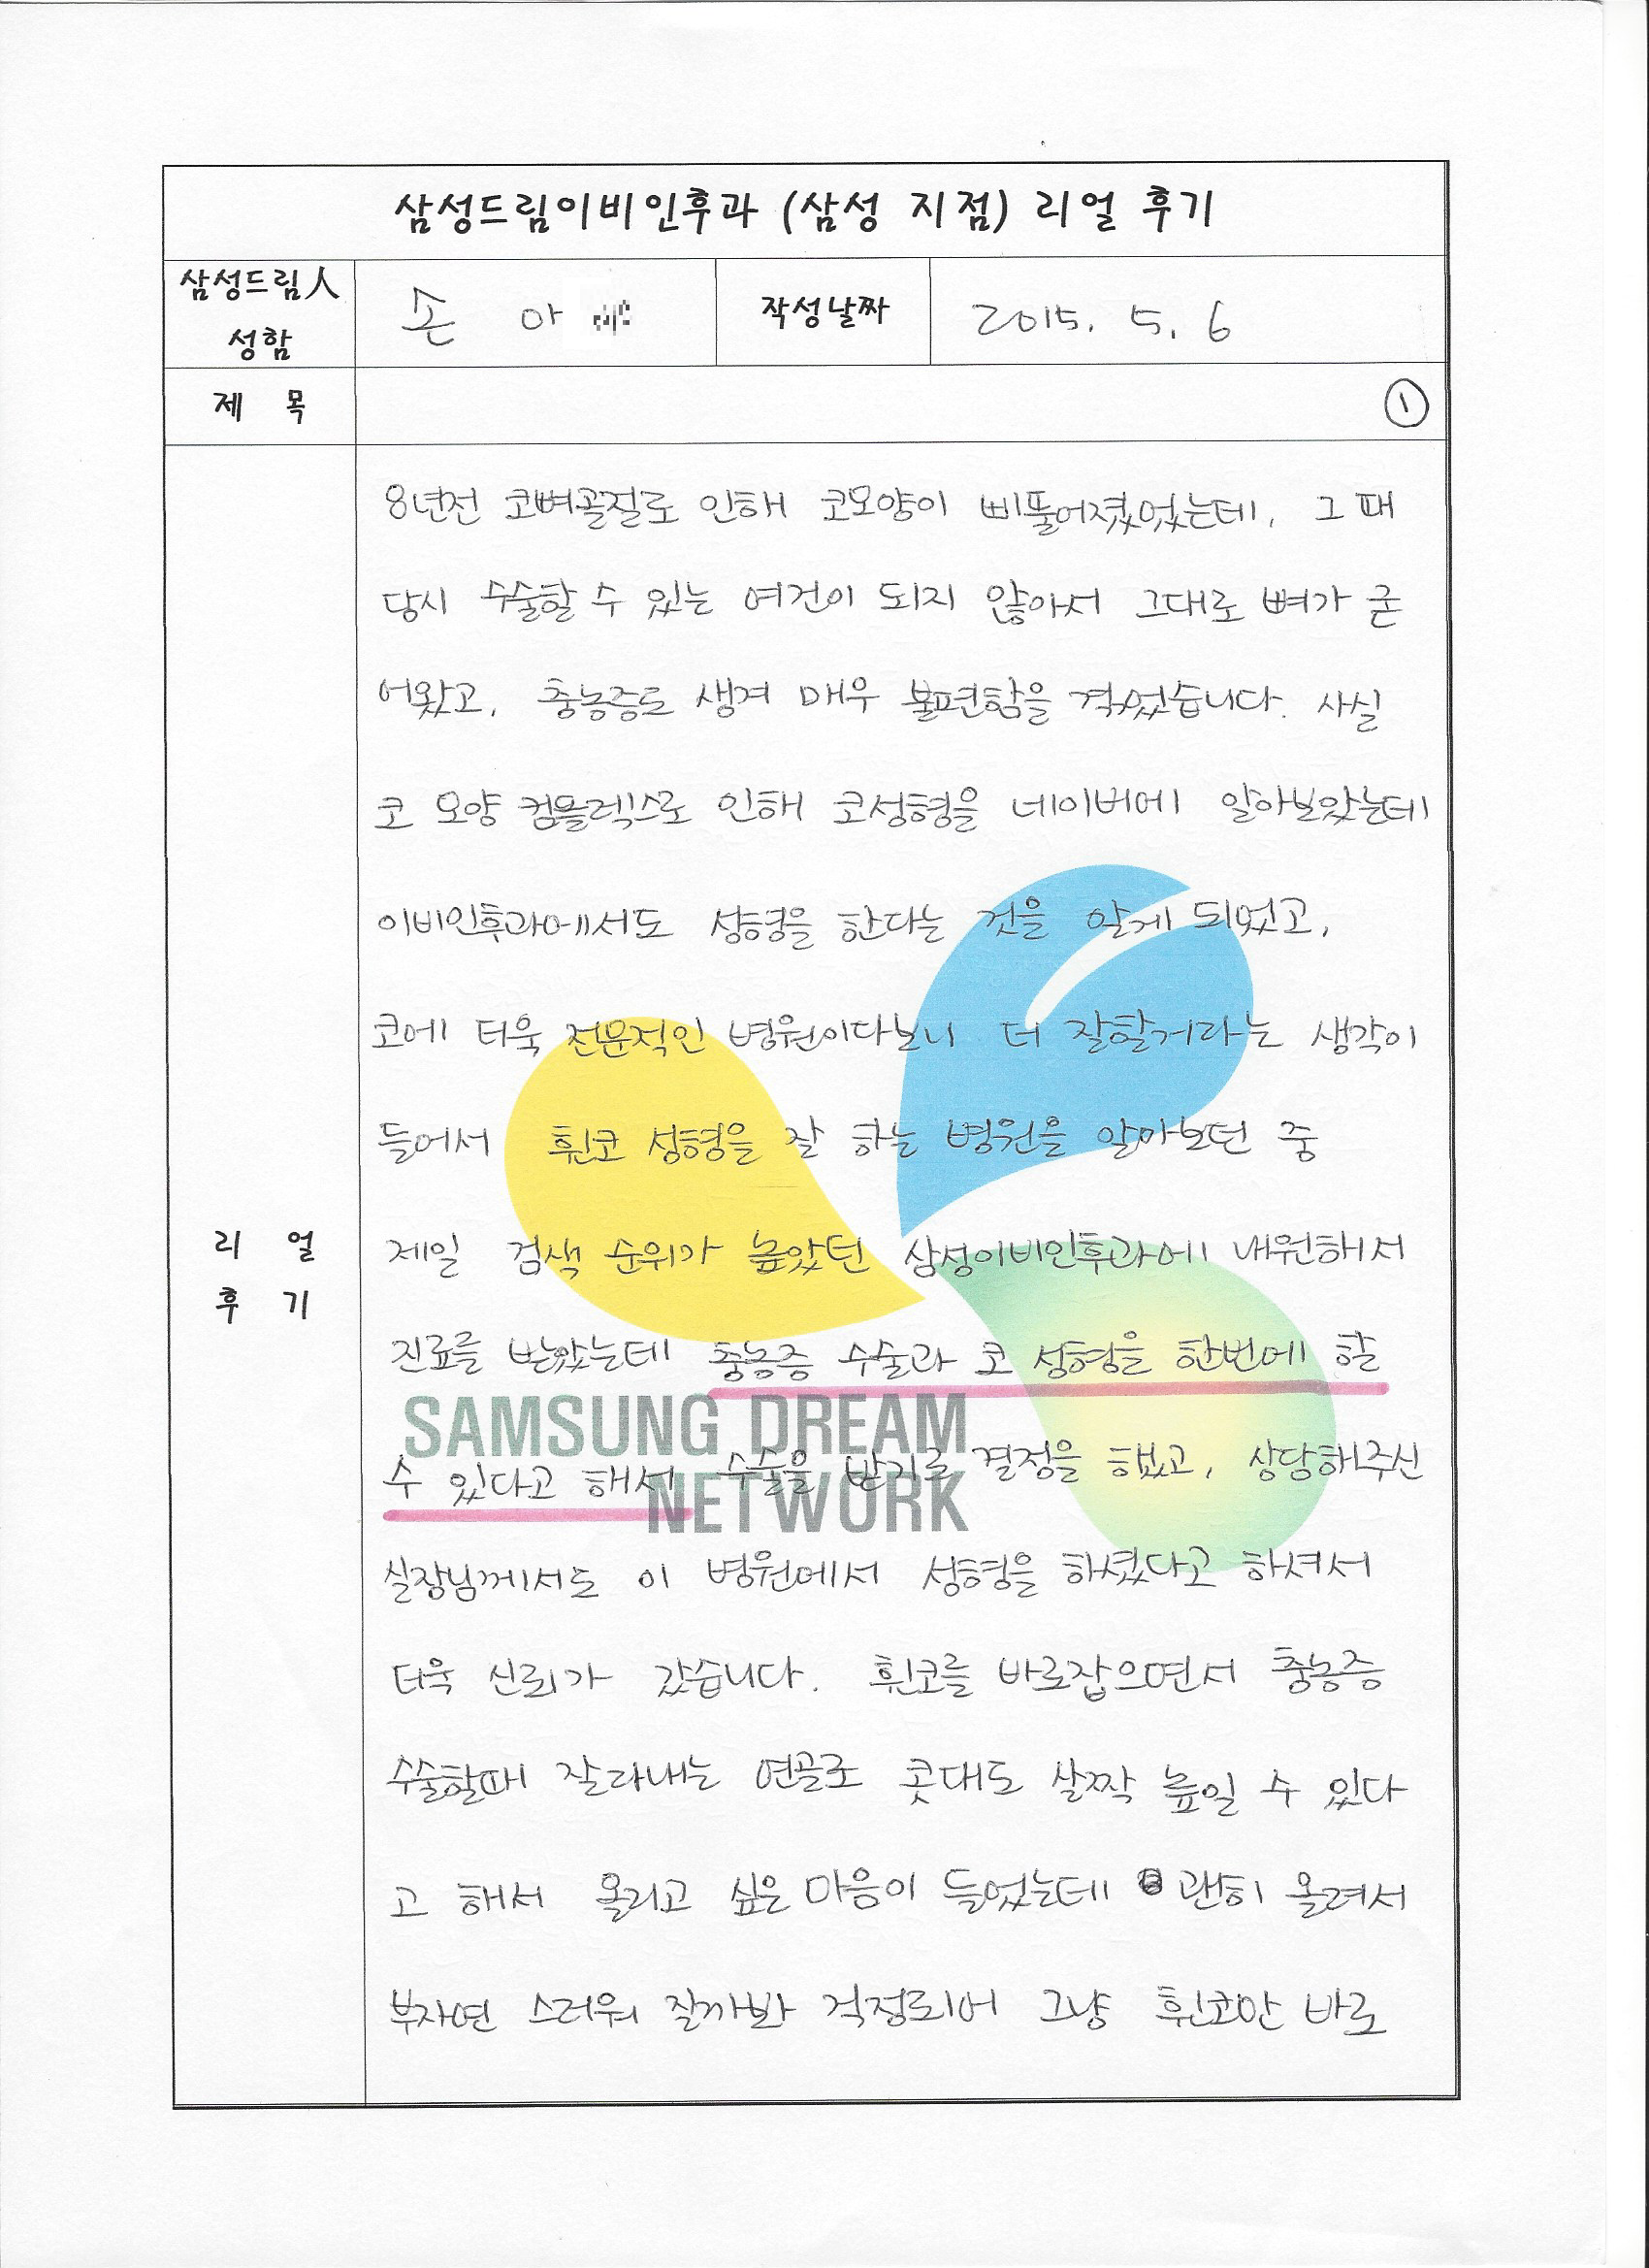 삼성드림이비인후과 (삼성 지점) 리얼 후기
삼성드림人
성함
손 아
작성날짜
2015. 5. 6
제 목
①
8년전 코뼈골절로 인해 코모양이 삐뚤어졌었는데, 그 때
당시 수술할 수 있는 여건이 되지 않아서 그대로 뼈가 굳
어왔고, 충농증도 생겨 매우 불편함을 겪었습니다. 사실
코 모양 컴플렉스로 인해 코성형을 네이버에 알아보았는데
이비인후과에서도 성형을 한다는 것을 알게 되었고,
코에 더욱 전문적인 병원이다보니 더 잘할거라는 생각이
들어서 휜코 성형을 잘 하는 병원을 알아보던 중
제일 검색 순위가 높았던 삼성이비인후과에 내원해서
진료를 받았는데 충농증 수술과 코 성형을 한번에 할
수 있다고 해서 수술을 받기로 결정을 했고, 상담해주신
실장님께서도 이 병원에서 성형을 하셨다고 하셔서
더욱 신뢰가 갔습니다. 휜코를 바로잡으면서 충농증
수술할때 잘라내는 연골로 콧대도 살짝 높일 수 있다
고 해서 올리고 싶은 마음이 들었는데 괜히 올려서
부자연 스러워 질까봐 걱정되어 그냥 휜코만 바로
리 얼
후 기
SAMSUNG DREAM
NETWORK